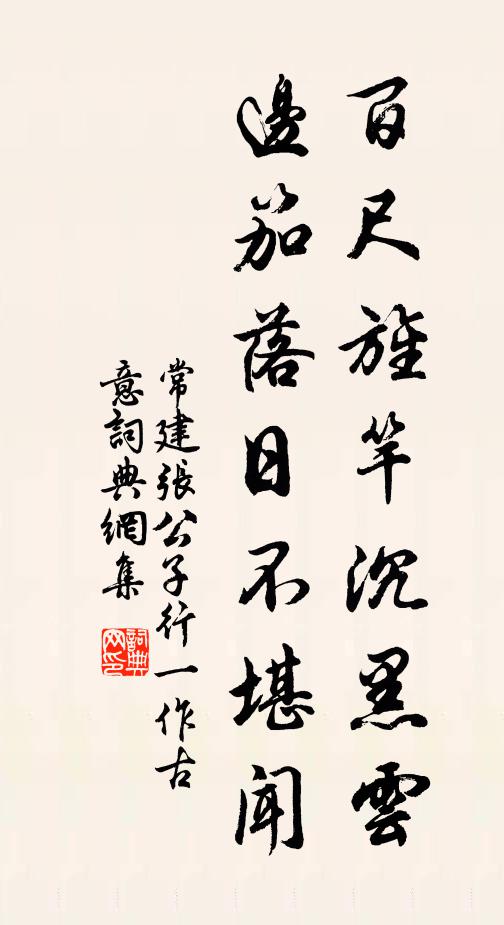 百尺旌竿沉黑雲
邊笳落日不堪聞
常建張公子行一作古
意詞典網集
詞典网印